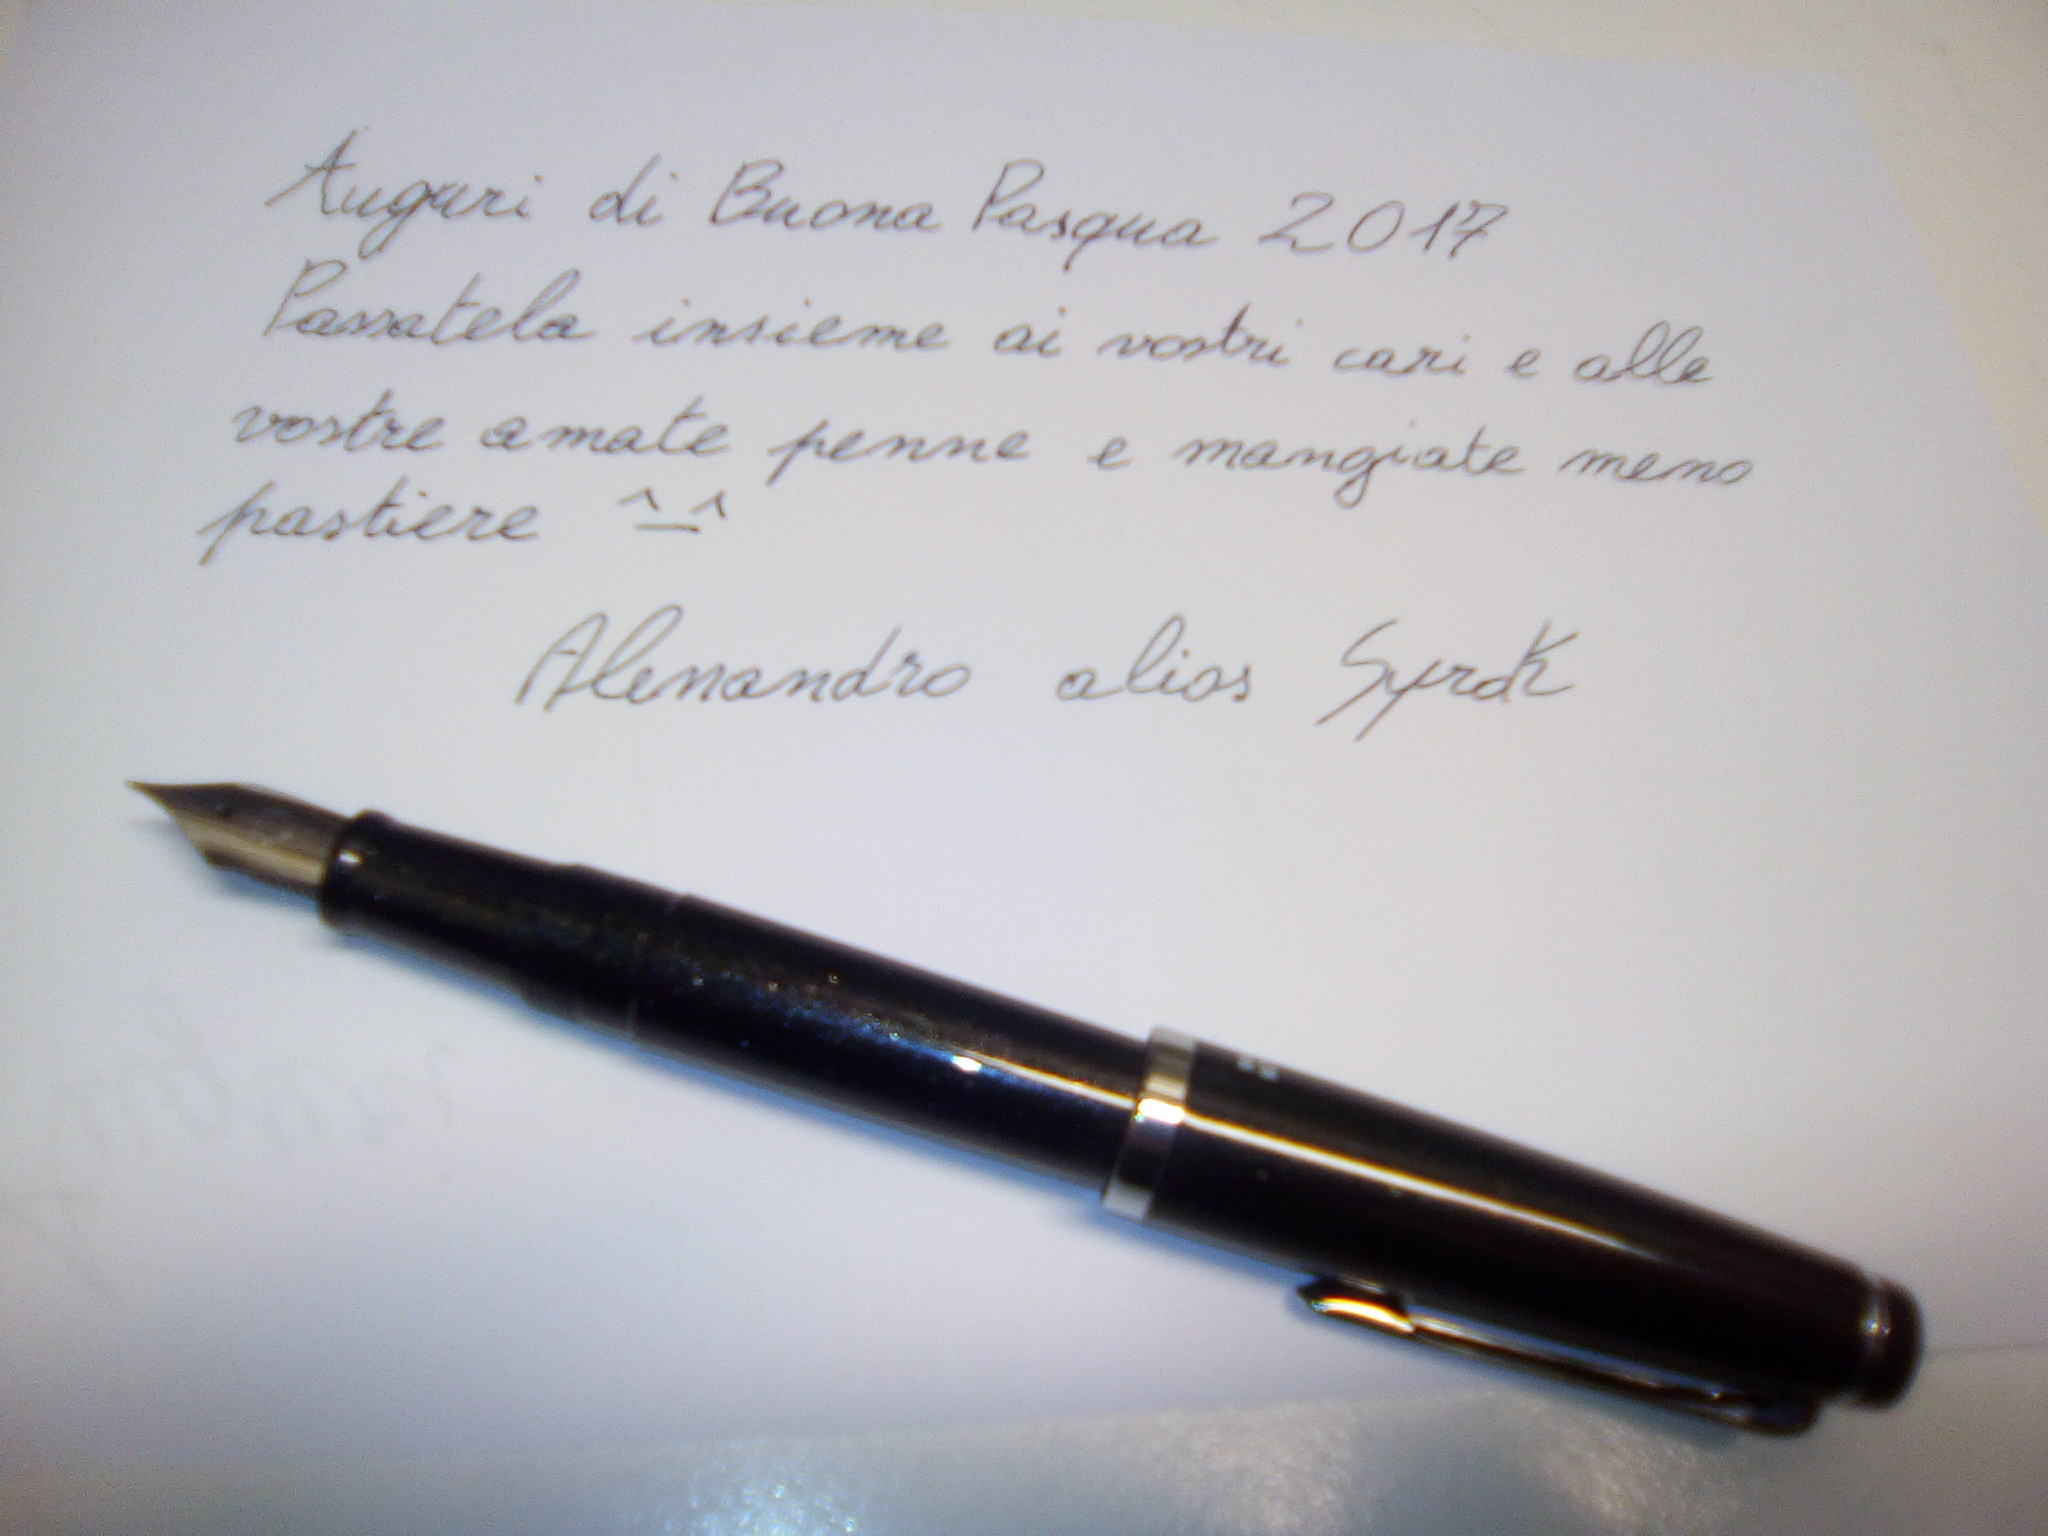 Auguri di Buona Pasqua 2017
Passatela insieme ai vostri cari e alle
vostre amate penne e mangiate meno
pastiere ^_^
Alessandro alias Syrok